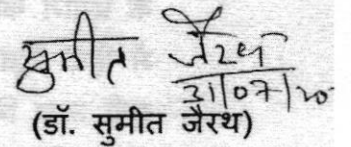 सुमीत जैरथ
31/07/20
(डॉ. सुमीत जैरथ)